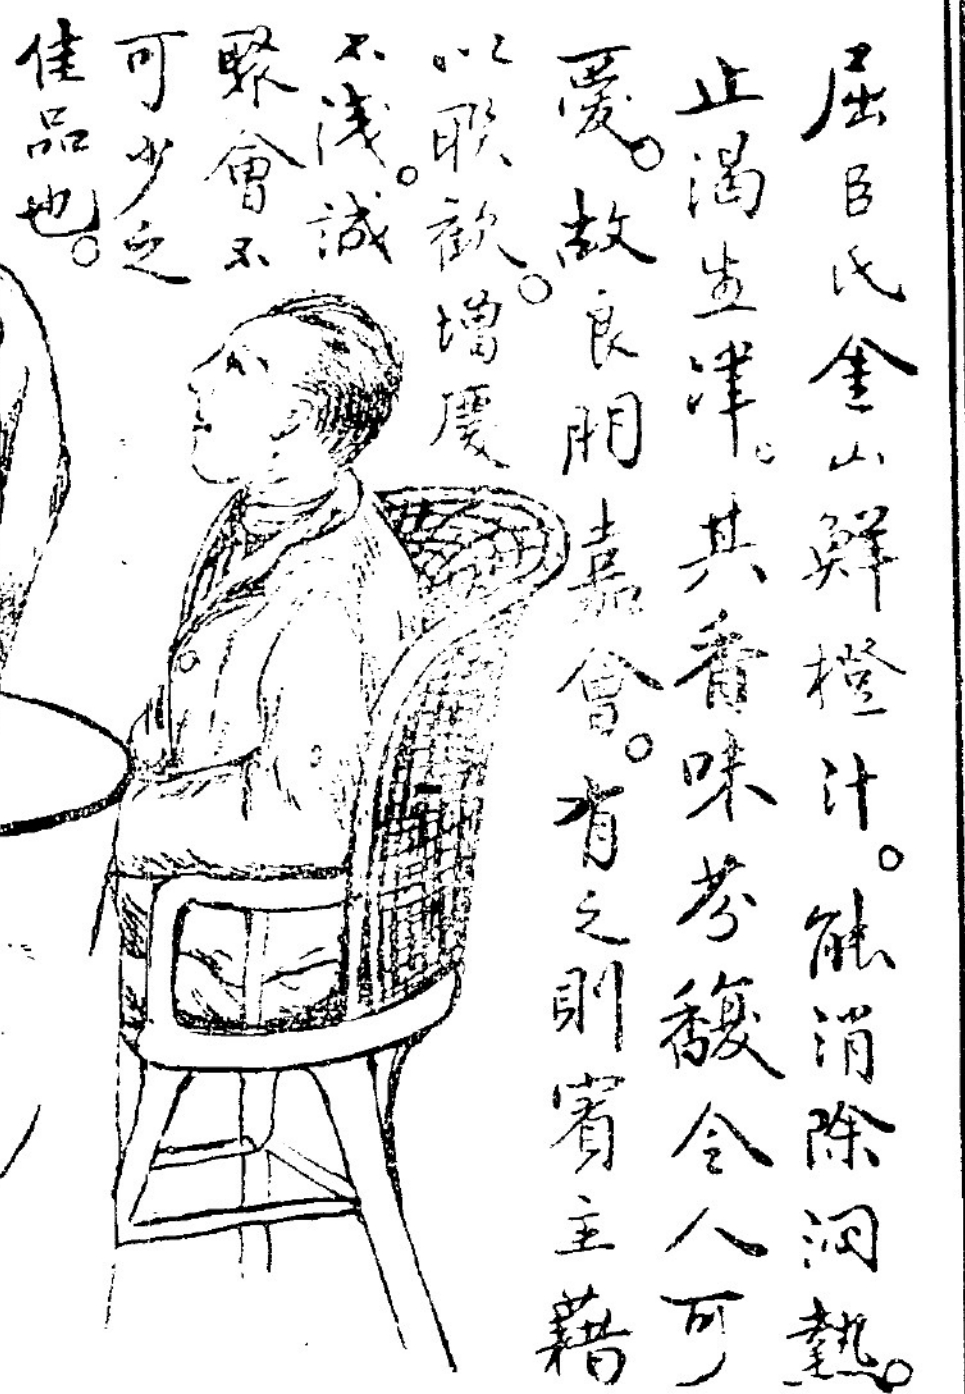 屈臣氏金山鮮橙汁。能消除洞熱。
止渴生津。其香味芬馥令人可
愛。故良朋嘉會。有之則賓主藉
以聯歡。增慶
不淺。誠
聚會不
可少之
佳品也。